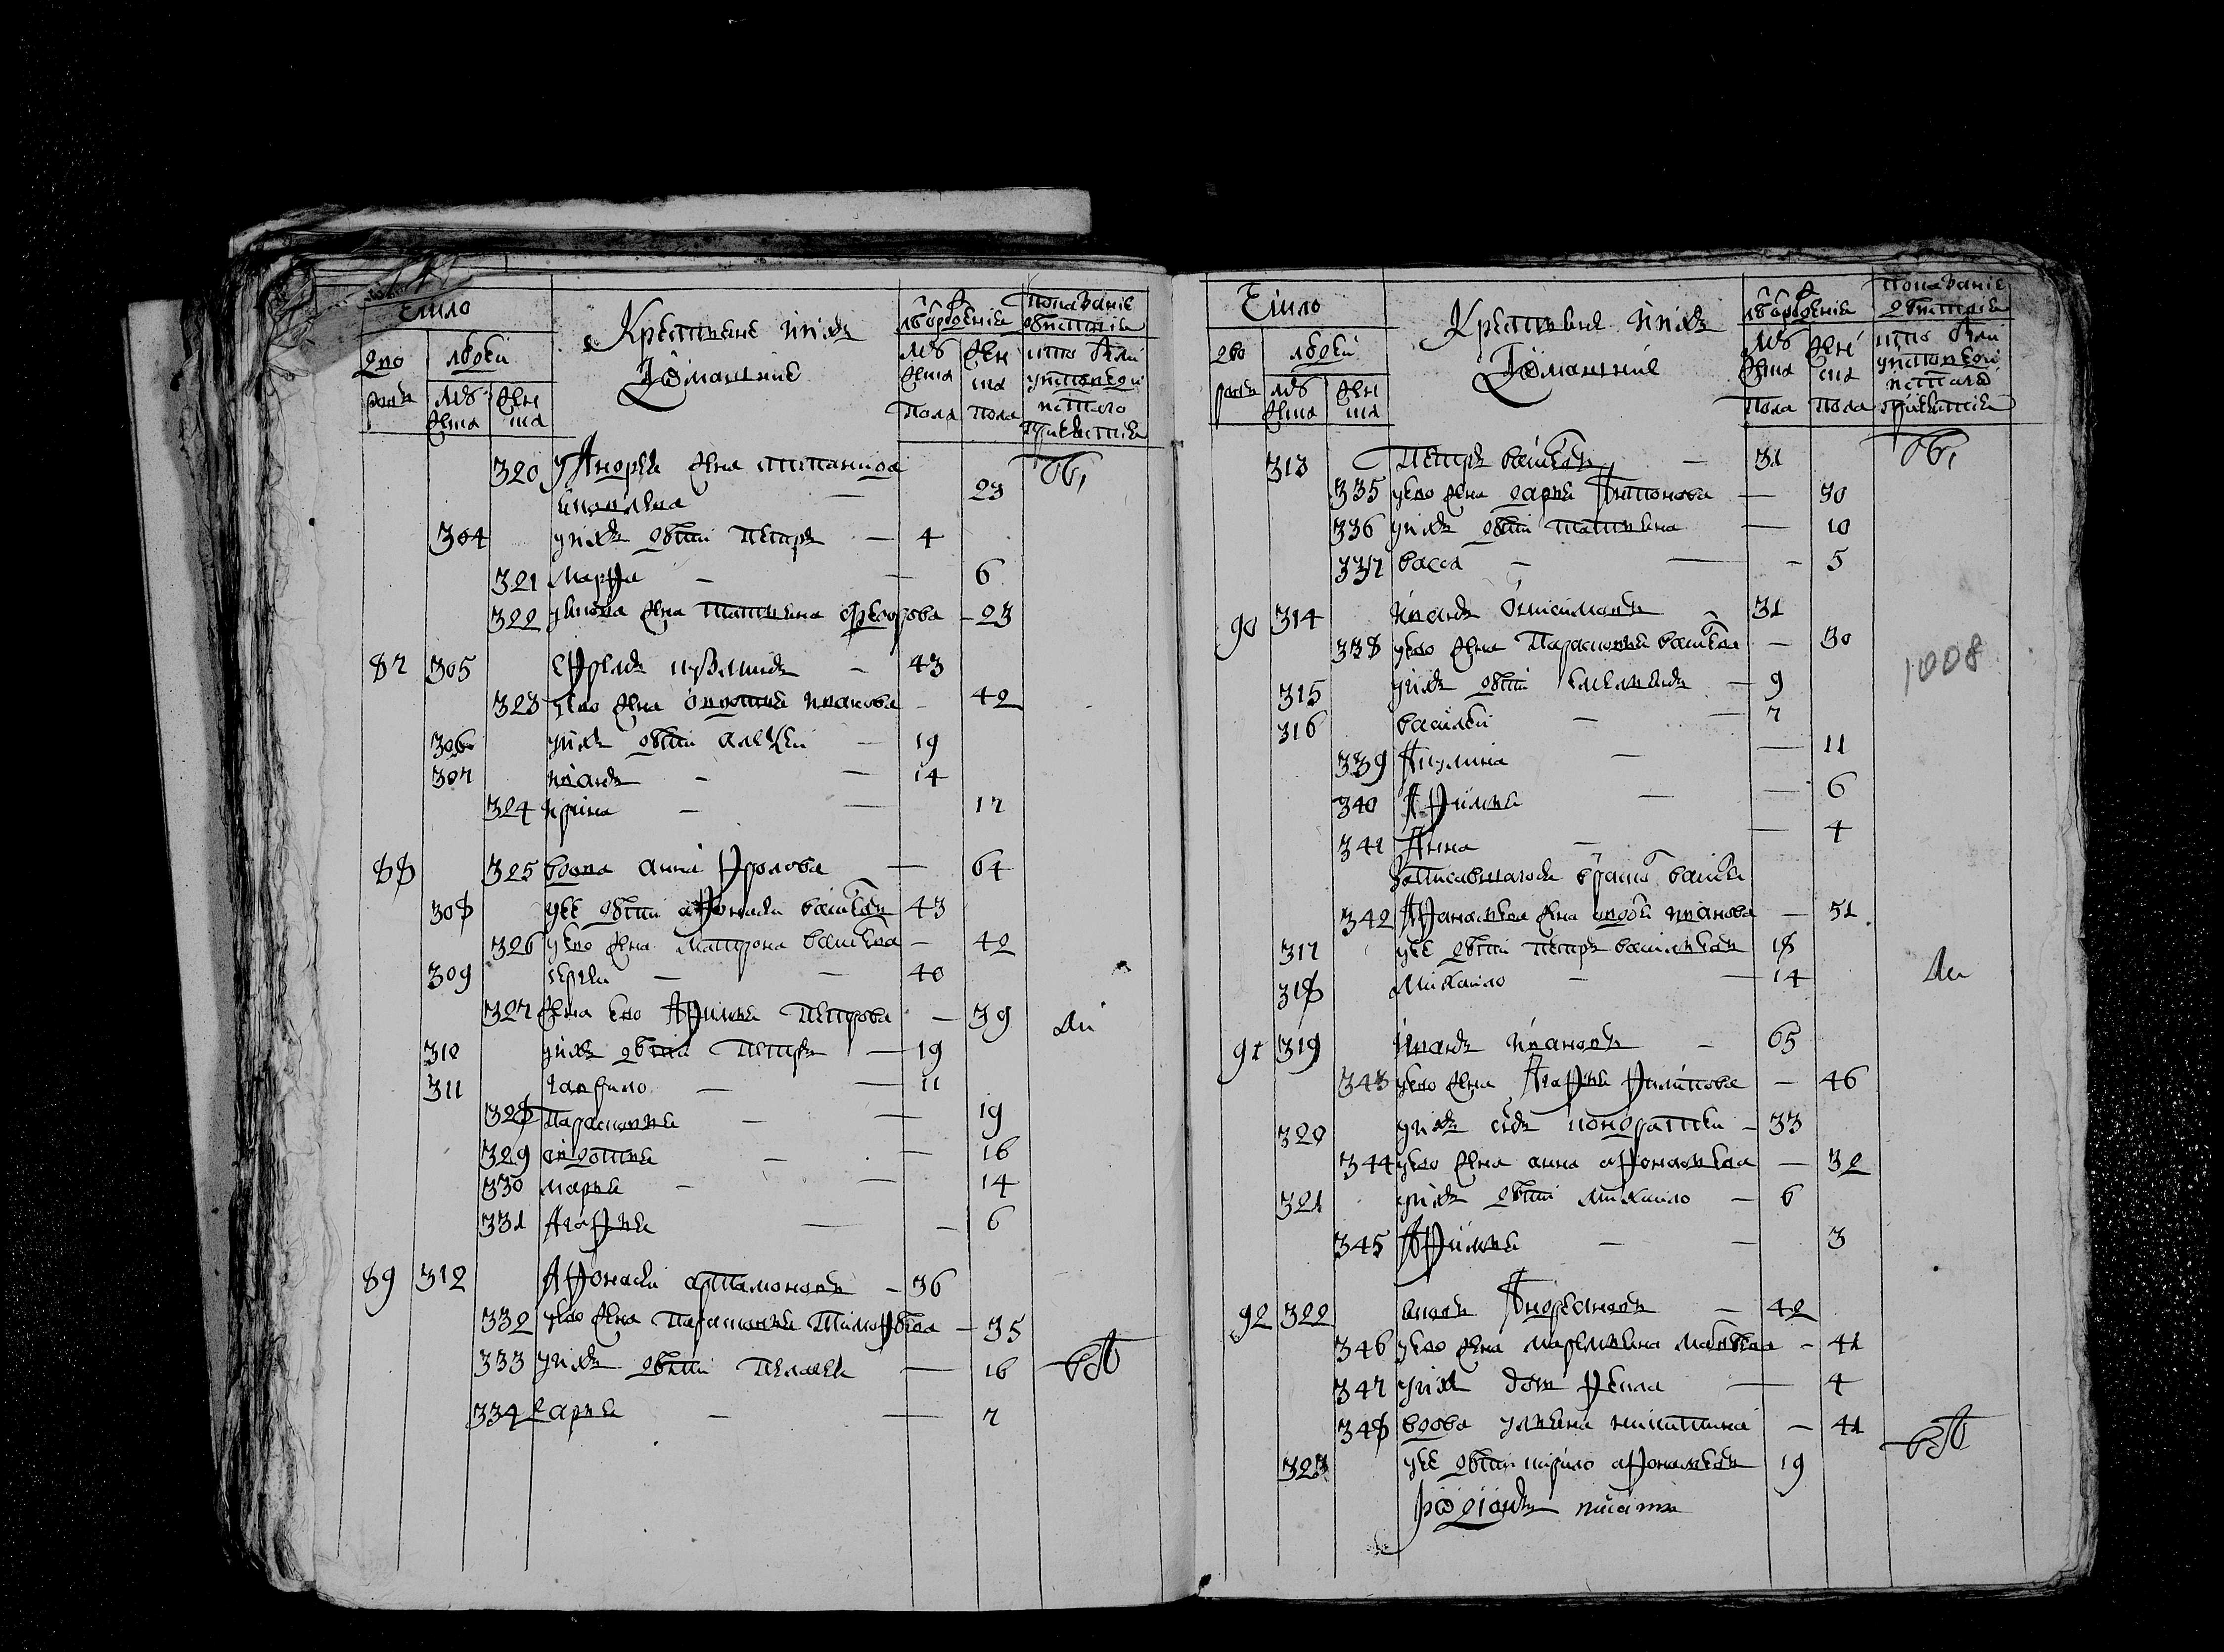 Число
дво
ров
людей
муж
еска
жен
ска
Крестьяне и их
Домашние
лѣта от рождения
муж
еска
пола
жен
ска
пола
показание
о бытии
кто был
у исповеди
и святаго
причастия
320 у Андрея жена Степанида
Яковлева — 23
304 у них дети Петр — 4
321 Марфа — — 6
322 Якова жена Татьяна Федорова — 23
87 305 — 43
323 у ево жена Авдотья Иванова — 42
306 у них дети Алексей — 19
307 Иван — — 14
324 Ирина — — 17
88 325 вдова Анна Фролова — 64
308 у ее дети Афонасей Васильев 43
326 у ево жена Матрона Васильева — 42
309 Сергей — — 40
327 жена ево Афимья Петрова — 39
310 у них дети Петр — 19
311 Гаврило — — 11
328 Парасковья — — 19
329 Авдотья — — 16
330 Марья — — 14
331 Агафья — — 6
89 312 Афонасей Артамонов — 36
332 у ево жена Парасковья Тимофеева — 35
333 у них дети Пелагея — 16
334 Дарья — — 7
Число
дво
ров
людей
муж
еска
жен
ска
Крестьяне и их
Домашние
лѣта от рождения
муж
еска
пола
жен
ска
пола
показание
о бытии
кто был
у исповеди
и святаго
причастия
313 Петр Васильев — 31
335 у ево жена Дарья Антонова — 30
336 у них дети Татьяна — 10
337 Васса — — 5
90 314 Иван — 31
338 у ево жена Парасковья Васильева — 30
315 у них дети Емельян — 9
316 Василей — — 7
339 Акулина — — 11
340 Афимья — — 6
341 Анна — — 4
брата Василья
342 Афанасьева жена Иванова — 51
317 у ее дети Петр Васильев 18
318 Михайло — — 14
91 319 Иван Иванов — 65
343 у ево жена Агафья Филипова — 46
320 у них сын Кондратей — 33
344 у ево жена Анна Афонасьева — 32
321 у них дети Михайло — 6
345 Афимья — — 3
92 322 Яков Андреянов — 42
346 у ево жена Маремьяна Матвеева — 41
347 у них дочь Фекла — 4
348 вдова Ульяна Никитина — 41
323 у ее дети Кирило Афонасьев 19
1008